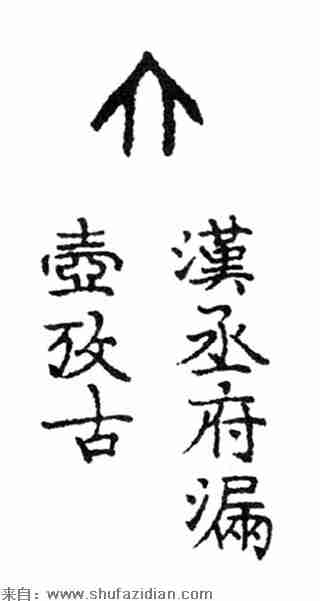 漢丞府漏
壺攷古
来自：www.shufazidian.com